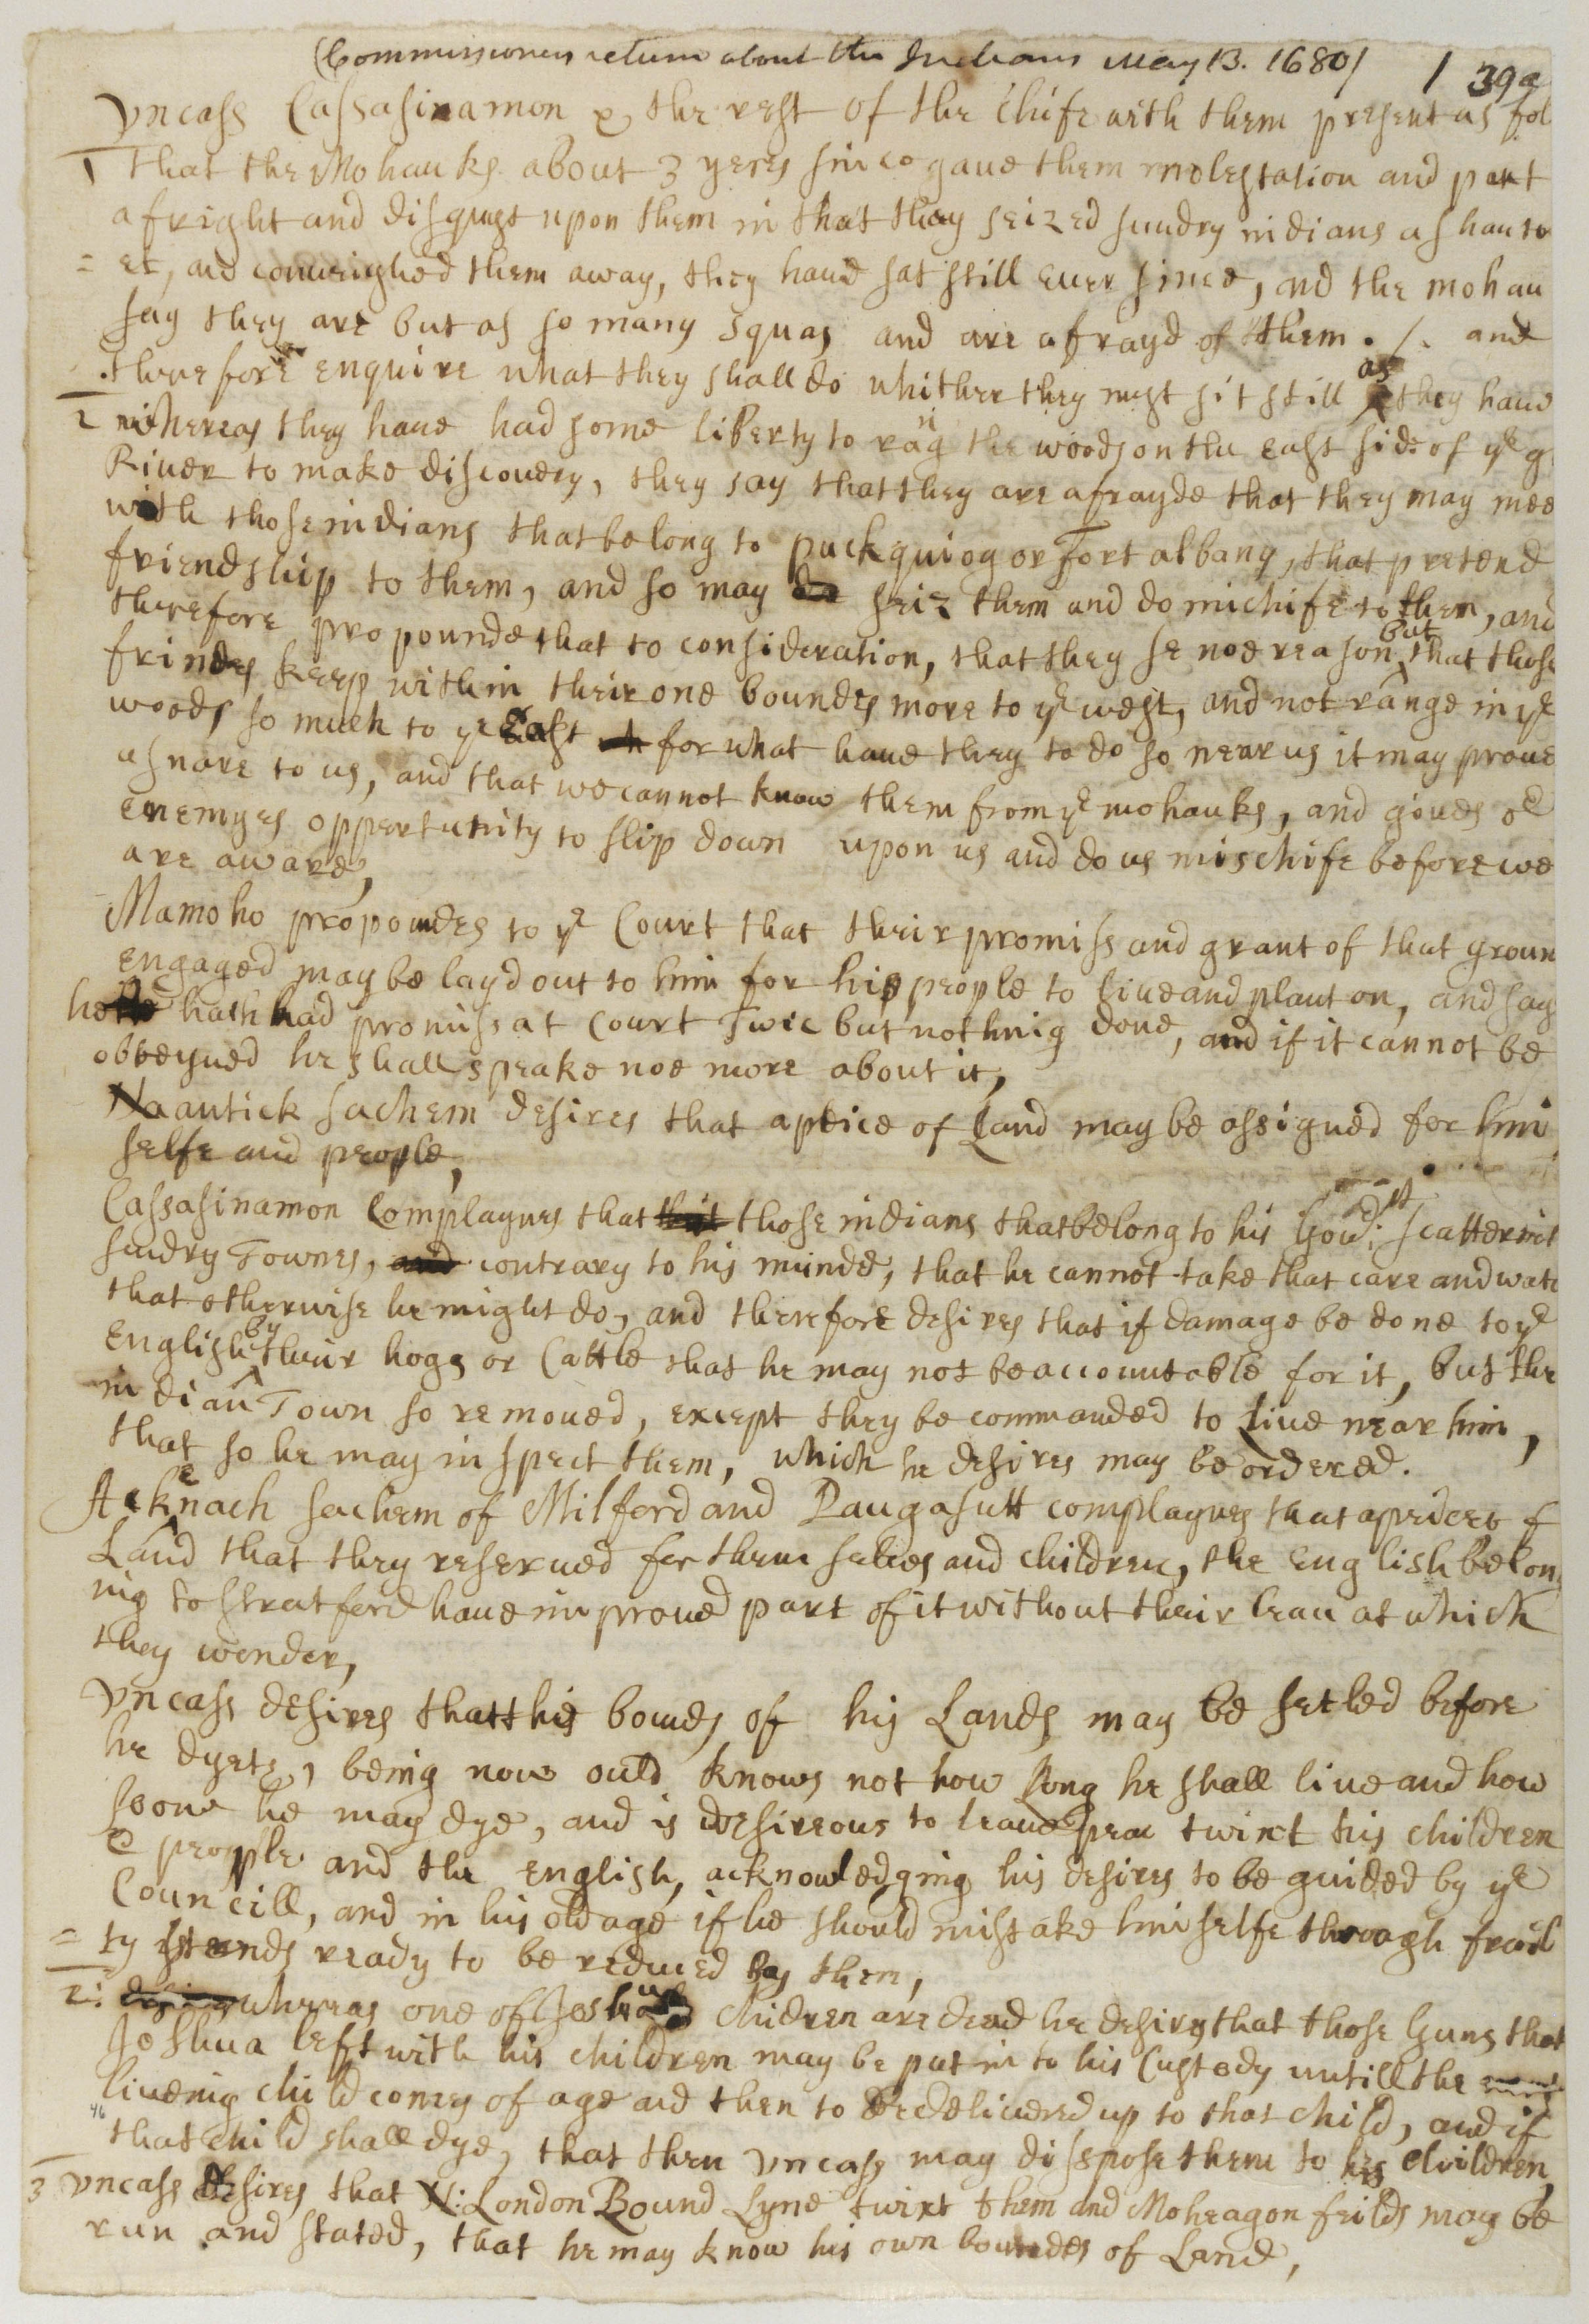 (Commissioners return about the Indians May 13. 1680/ / 39a
Vncass Cassasinamon & the rest of the Chife with them present as fol
1 that the Mohauks about 3 yeres since gaue them molestation and put
afright and disgust upon them in that they seized sundry indians as han to
= et, and conueighed them away, they haue sat still euer since, and the mohau
say they are but as so many squas and are afrayd of them . /. and
therefore enquire what they shall do whither they must sit still as they haue
2 whereas they haue had some liberty to rang the woods on the east side of ye g
Riuer to make discouery, they say that they are afrayde that they may mee
with those indians that belong to packquiog or Fort albany, that pretend
friendship to them, and so may seiz them and do michife to them, and
therefore propounde that to consideration, that they se noe reason but that those
frindes keep within their one boundes more to ye west, and not range in ye
woods so much to ye East for what haue they to do so near us it may proue
asnare to us, and that we cannot know them from ye mohauks, and giues oe
enemyes oppertunity to slip down upon us and do us mischife before we
are aware,
Mamoho propoundes to ye Court that their promiss and grant of that groun
engaged may be layd out to him for his people to liue and plant on, and say
he hath had promiss at Court Twic but nothing done, and if it cannot be
obteyned he shall speake noe more about it,
Naantick sachem desires that apeice of Land may be assigned for him
selfe and people,
Cassasinamon Complaynes that those indians that belong to his Gou: scatter int
sundry Townes, contrary to his minde, that he cannot take that care and watc
that otherwise he might do, and therefore desires that if damage be done to ye
English by their hogs or Cattle that he may not be accountable for it, but the
indian Town so remoued, except they be commanded to Liue near him,
that so he may inspect them, which he desires may be ordered.
Ackenach sachem of Milford and Paugasutt complaynes that apeice of
Land that they reserued for them selues and children, the English belon
ing to Stratford haue improued part of it without their leau at which
they wonder,
Vncass desires that his bounds of his Lands may be setled before
he dyete, being now ould knows not how long he shall liue and how
soone he may dye, and is desireous to leaue peac twixt his children
& people and the English, acknowledging his desires to be guided by ye
Councill, and in his old age if he should mistake himselfe through frail
= ty stands ready to be reduced by them,
2: wheras one of Joshuas children are dead he desires that those Guns that
Joshua left with his children may be put in to his Custody untill the
liueing child comes of age and then to be deliuered up to that child, and if
that child shall dye, that then Vncass may disspose them to his Children,
3 Vncass desires that N: London Bound Lyne twixt them and Moheagon feilds may be
run and stated, that he may know his own boundes of Land,